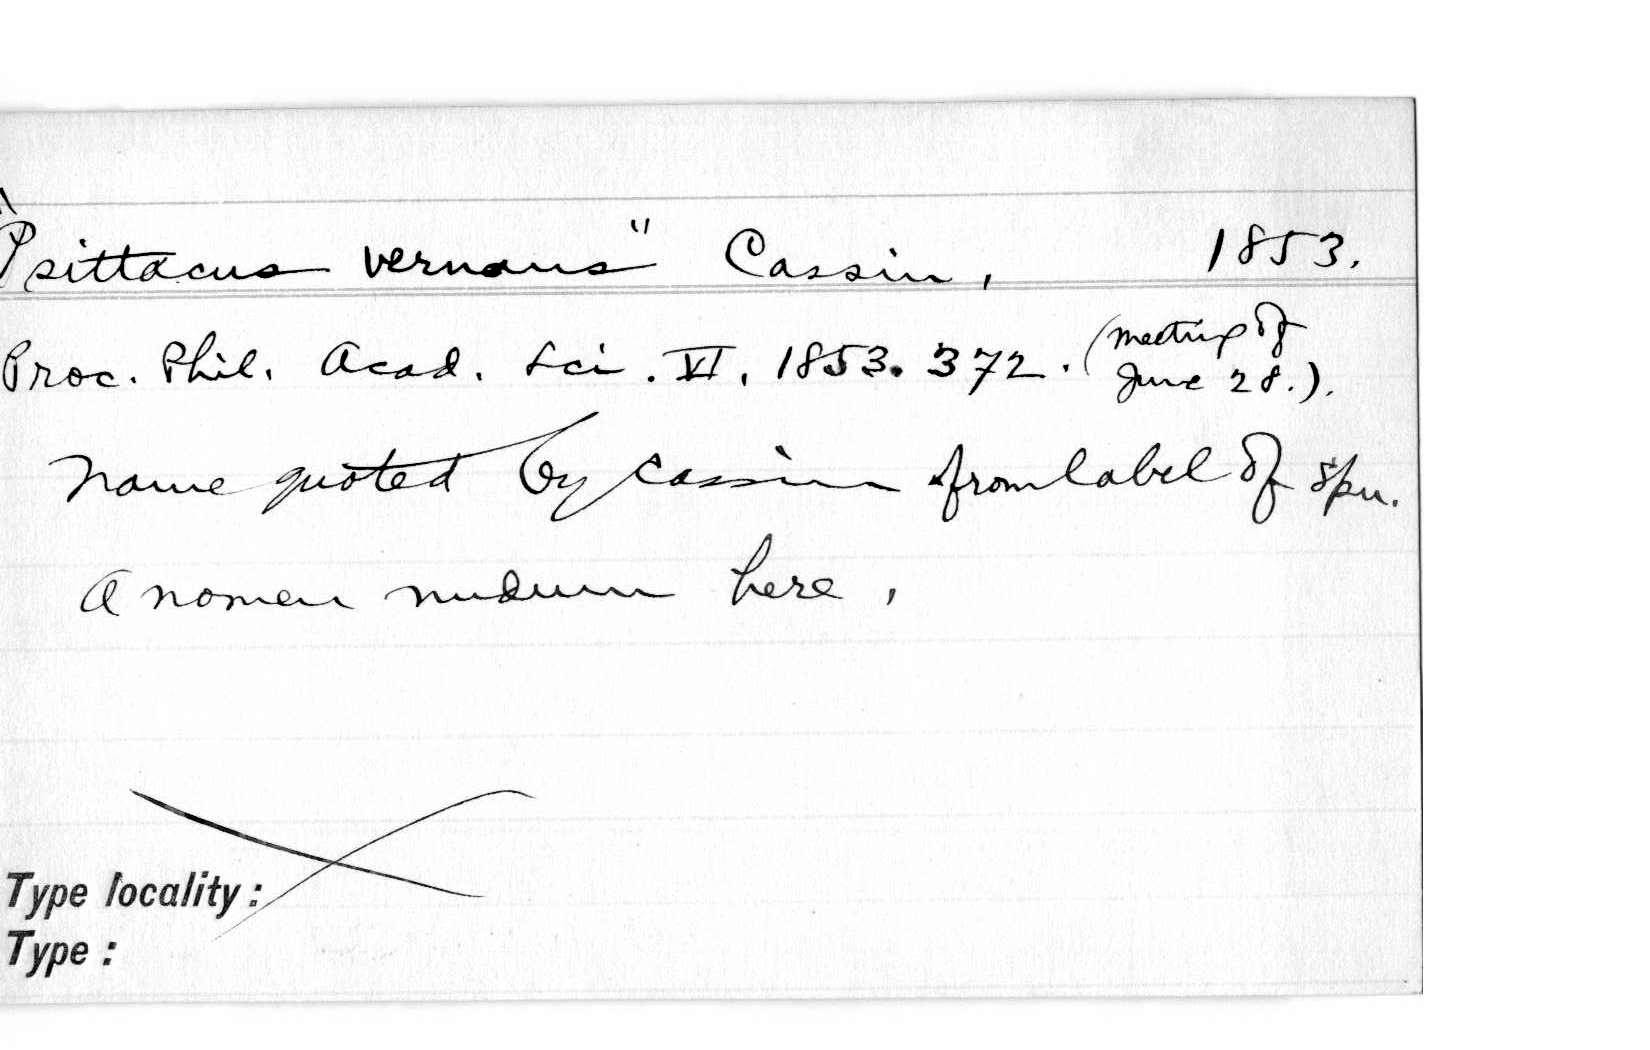 "Psittacus vernans" Cassin, 1853.
Proc. Phil. Acad. Sci. VI, 1853. 372. (meeting of
June 28.).
Name quoted by Cassin from label of spn.
A nomen nudum here,
Type locality:
Type: